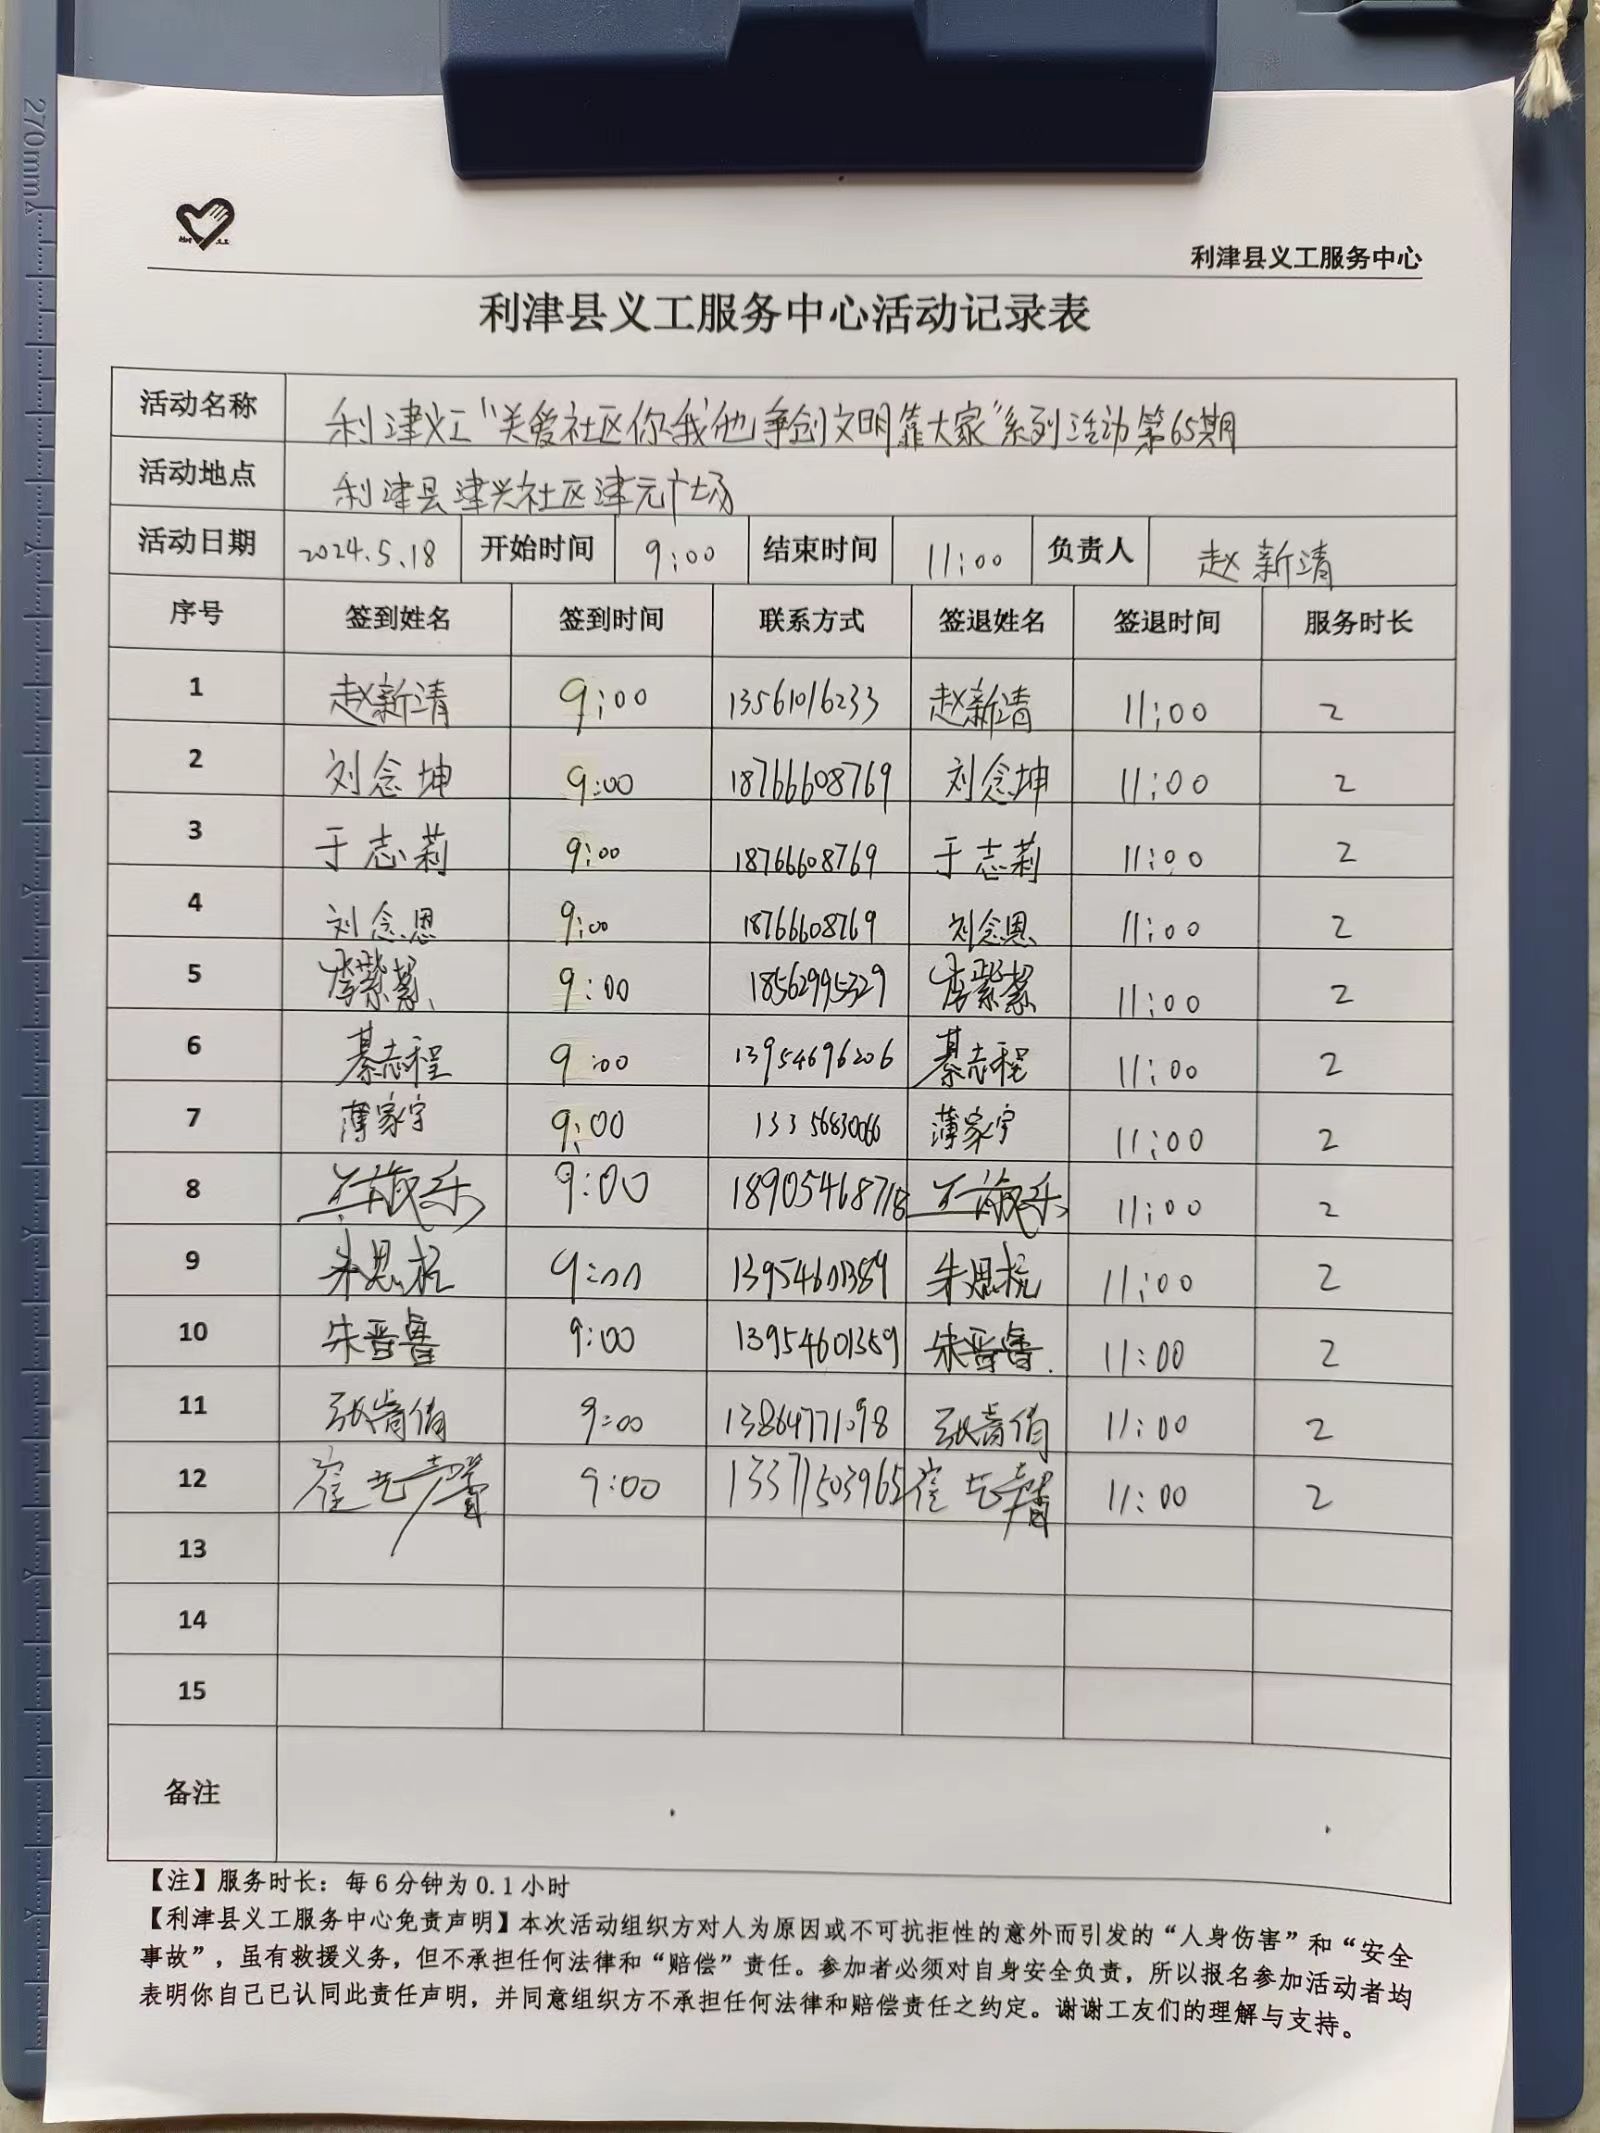 270mm
利津县义工服务中心
利津县义工服务中心活动记录表
活动名称 利津义工“关爱社区你我他争创文明靠大家”系列活动第65期
活动地点 利津县津兴社区津元广场
活动日期 2024.5.18 开始时间 9:00 结束时间 11:00 负责人 赵新清
序号 签到姓名 签到时间 联系方式 签退姓名 签退时间 服务时长
1 赵新清 9:00 13561016233 赵新清 11:00 2
2 刘念坤 9:00 18766608769 刘念坤 11:00 2
3 于志莉 9:00 18766608769 于志莉 11:00 2
4 刘念恩 9:00 18766608769 刘念恩 11:00 2
5 9:00 18562995329 11:00 2
6 綦志程 9:00 13954696206 綦志程 11:00 2
7 薄家宇 9:00 13356830066 薄家宇 11:00 2
8 9:00 18905468718 11:00 2
9 朱思杭 9:00 13954601389 朱思杭 11:00 2
10 朱晋睿 9:00 13954601389 朱晋睿 11:00 2
11 9:00 13864771098 11:00 2
12 崔艺馨 9:00 13371503965 崔艺馨 11:00 2
13
14
15
备注
【注】服务时长：每6分钟为0.1小时
【利津县义工服务中心免责声明】本次活动组织方对人为原因或不可抗拒性的意外而引发的“人身伤害”和“安全
事故”，虽有救援义务，但不承担任何法律和“赔偿”责任。参加者必须对自身安全负责，所以报名参加活动者均
表明你自己已认同此责任声明，并同意组织方不承担任何法律和赔偿责任之约定。谢谢工友们的理解与支持。